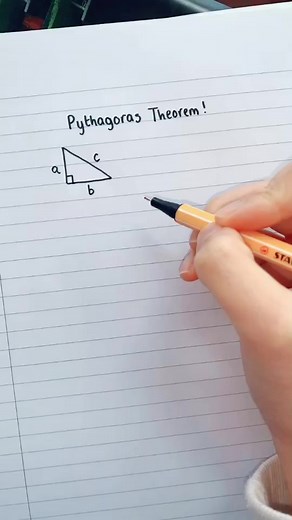 Pythagoras Theorem!
c
a
b
STA